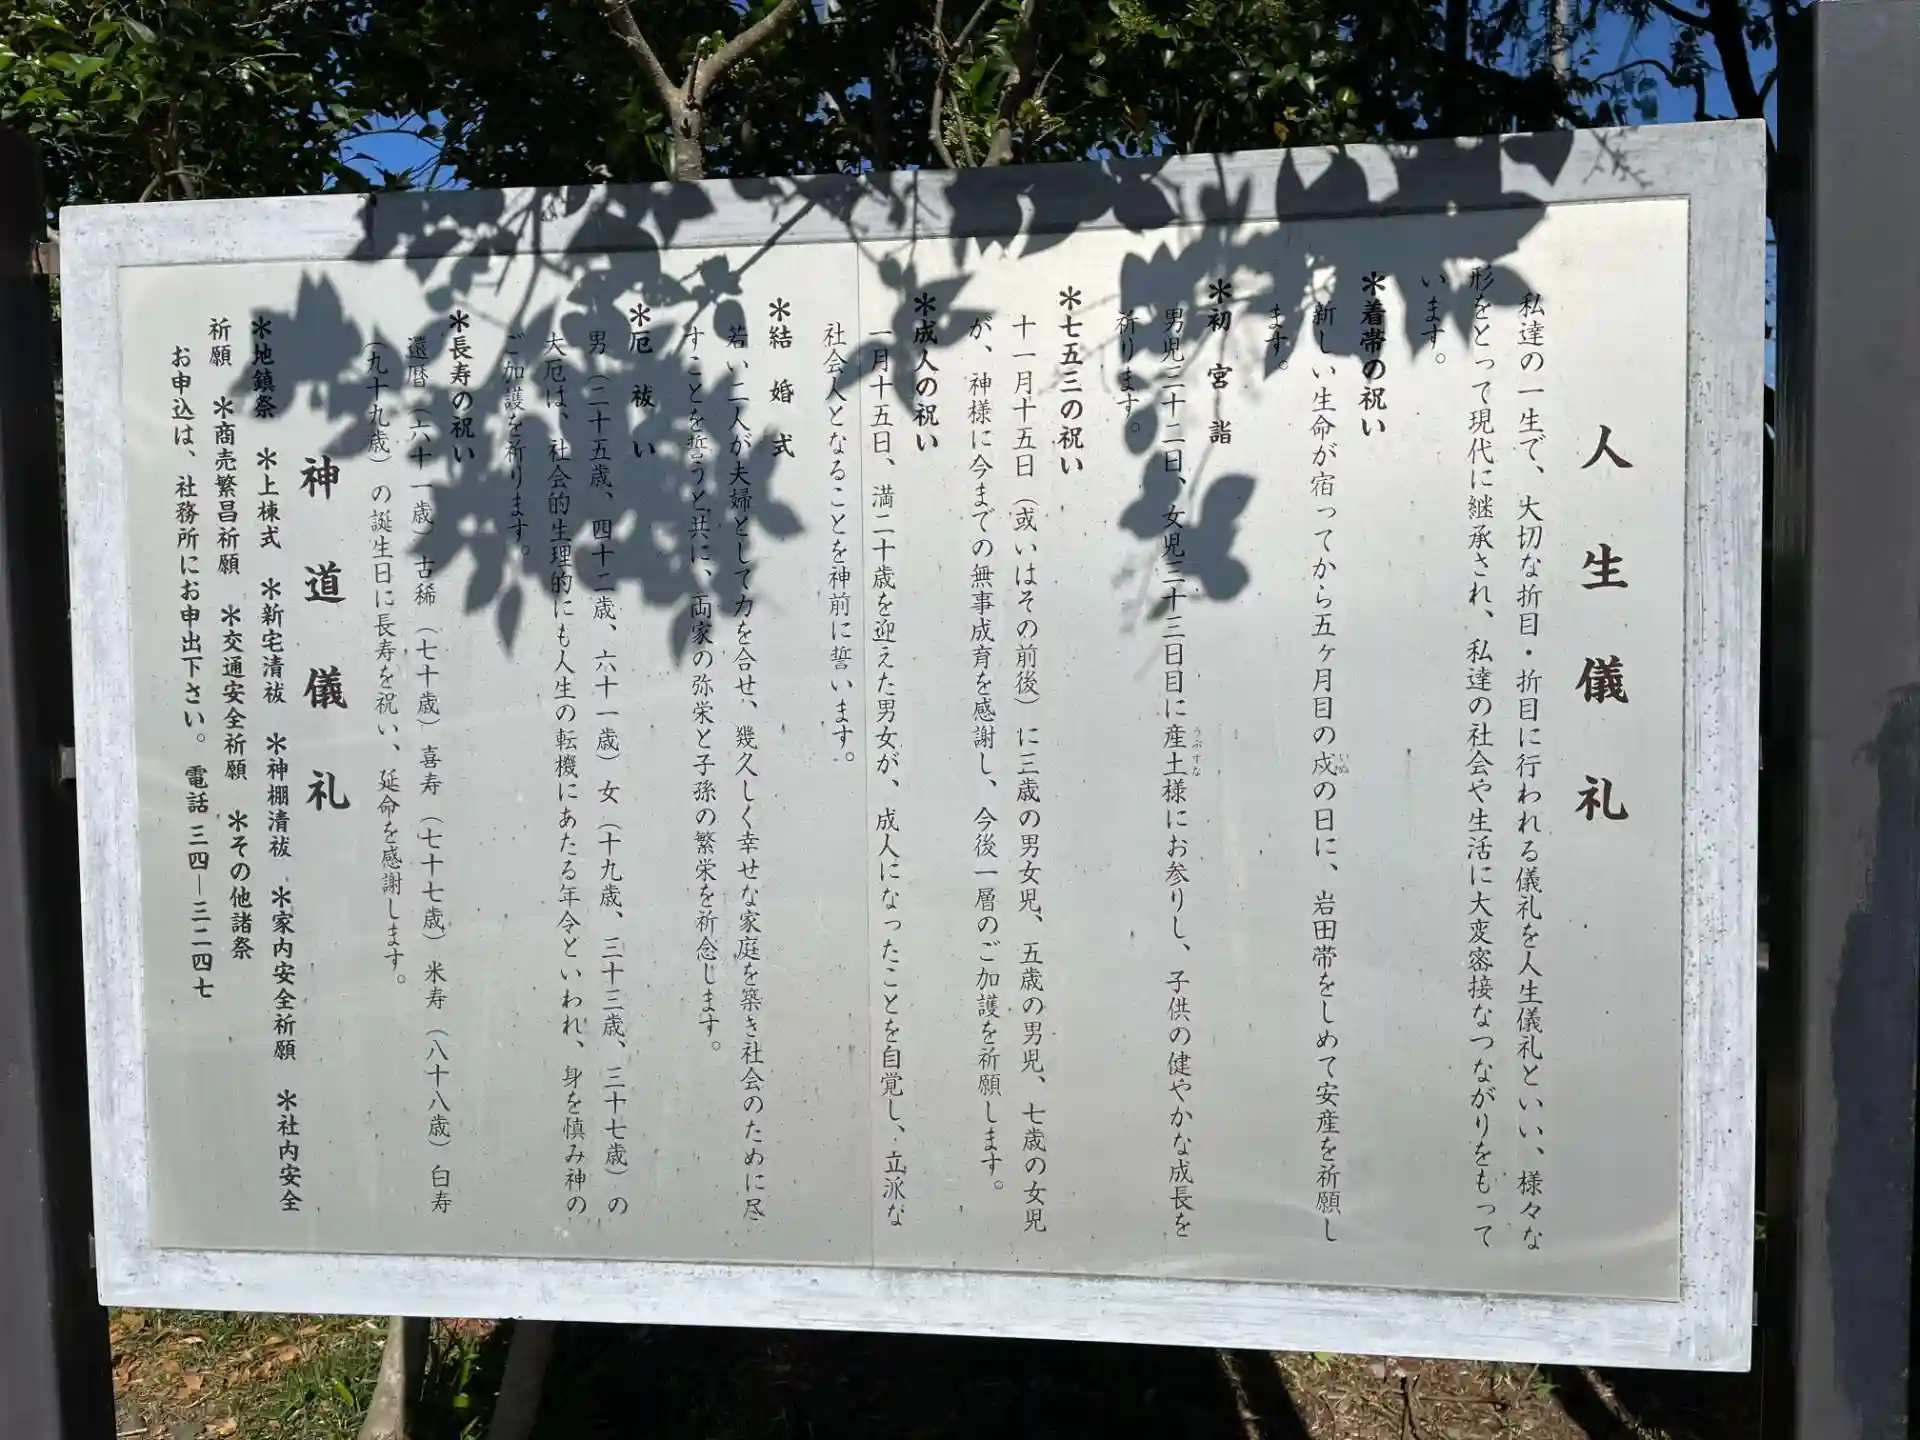 人生儀礼
私達の一生で、大切な折目・折目に行われる儀礼を人生儀礼といい、様々な
形をとって現代に継承され、私達の社会や生活に大変密接なつながりをもって
います。
＊着帯の祝い
新しい生命が宿ってから五ヶ月目の戌の日に、岩田帯をしめて安産を祈願し
いぬ
ます。
＊初宮詣
男児三十二日、女児三十三日目に産土様にお参りし、子供の健やかな成長を
うぶすな
祈ります。
＊七五三の祝い
十一月十五日（或いはその前後）に三歳の男女児、五歳の男児、七歳の女児
が、神様に今までの無事成育を感謝し、今後一層のご加護を祈願します。
＊成人の祝い
一月十五日、満二十歳を迎えた男女が、成人になったことを自覚し、立派な
社会人となることを神前に誓います。
＊結婚式
若い二人が夫婦として力を合せ、幾久しく幸せな家庭を築き社会のために尽
すことを誓うと共に、両家の弥栄と子孫の繁栄を祈念します。
＊厄祓い
男（二十五歳、四十二歳、六十一歳）女（十九歳、三十三歳、三十七歳）の
大厄は、社会的生理的にも人生の転機にあたる年令といわれ、身を慎み神の
ご加護を祈ります。
＊長寿の祝い
還暦（六十一歳）古稀（七十歳）喜寿（七十七歳）米寿（八十八歳）白寿
（九十九歳）の誕生日に長寿を祝い、延命を感謝します。
神道儀礼
＊地鎮祭　＊上棟式　＊新宅清祓　＊神棚清祓　＊家内安全祈願　＊社内安全
祈願　＊商売繁昌祈願　＊交通安全祈願　＊その他諸祭
お申込は、社務所にお申出下さい。電話三四―三二四七